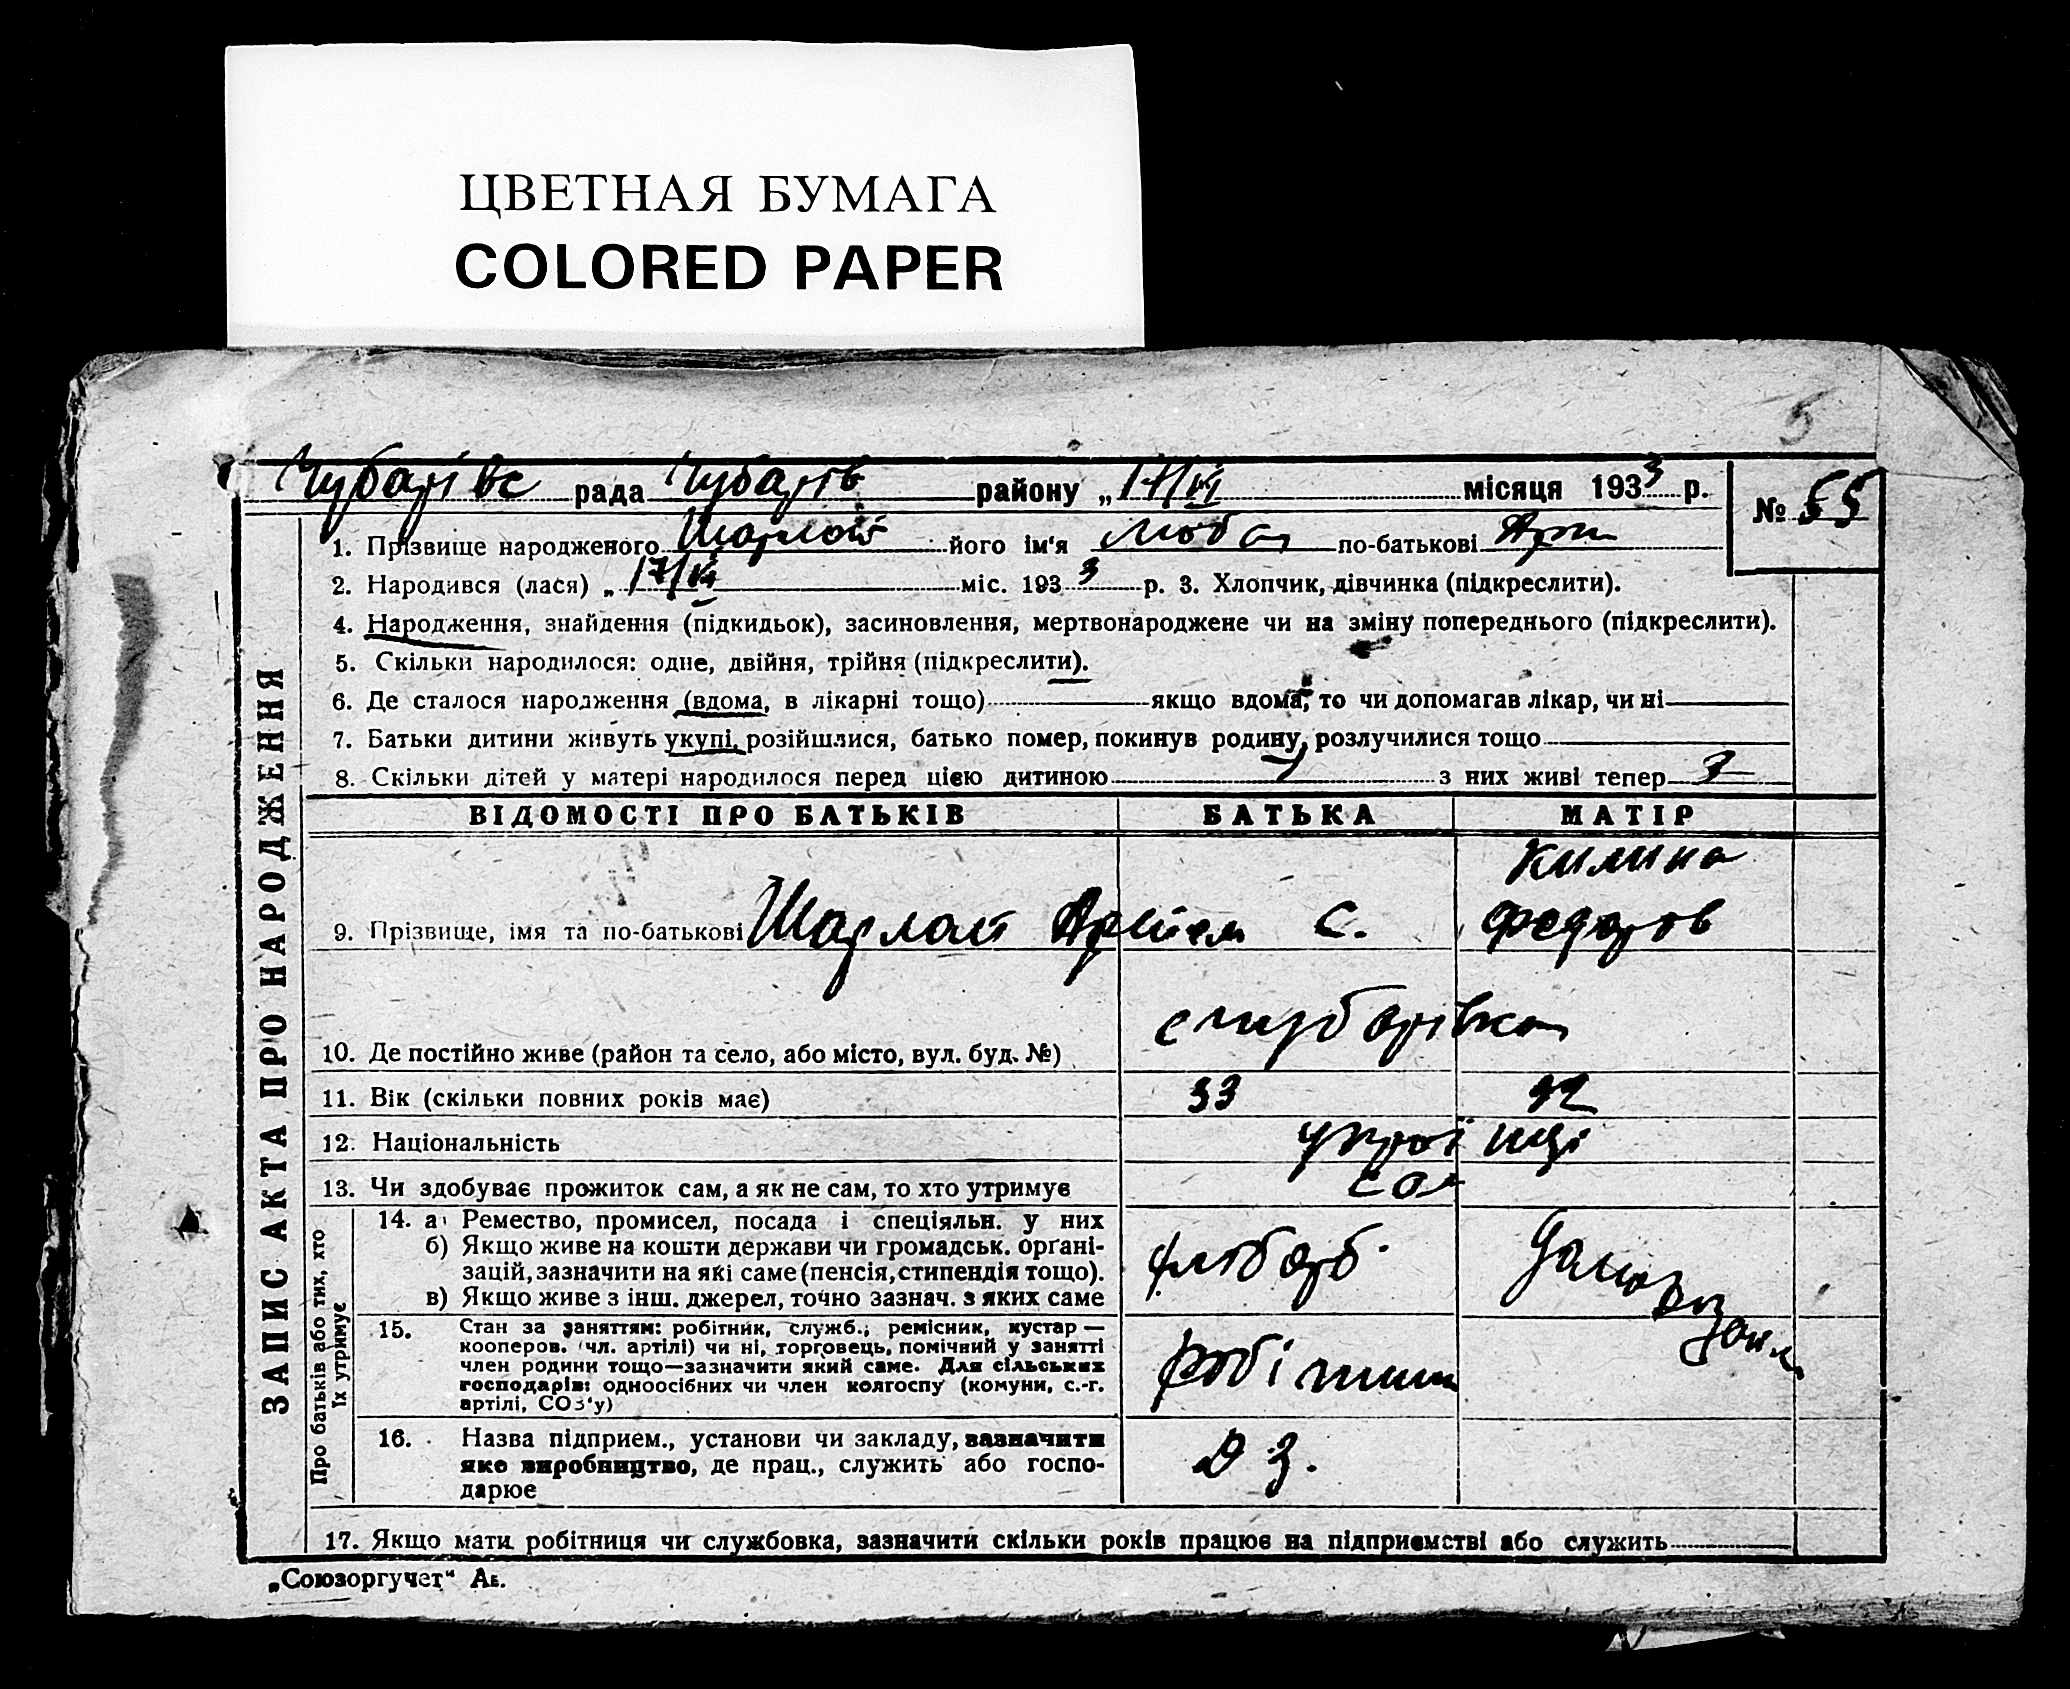 ЦВЕТНАЯ БУМАГА
COLORED PAPER
5
Чубарівс рада Чубарів району „ 17/VI місяця 1933 р.
№ 55
ЗАПИС АКТА ПРО НАРОДЖЕННЯ
1. Прізвище народженого Шарлай його ім'я Люба по-батькові Арт
2. Народився (лася) „ 17/VI міс. 1933 р. 3. Хлопчик, дівчинка (підкреслити).
4. Народження, знайдення (підкидьок), засиновлення, мертвонароджене чи на зміну попереднього (підкреслити).
5. Скільки народилося: одне, двійня, трійня (підкреслити).
6. Де сталося народження (вдома, в лікарні тощо) якщо вдома, то чи допомагав лікар, чи ні
7. Батьки дитини живуть укупі, розійшлися, батько помер, покинув родину, розлучилися тощо
8. Скільки дітей у матері народилося перед цією дитиною з них живі тепер 3
ВІДОМОСТІ ПРО БАТЬКІВ БАТЬКА МАТІР
Килина
9. Прізвище, імя та по-батькові Шарлай Артем С. Федоров
с Чубарівка
10. Де постійно живе (район та село, або місто, вул. буд. №)
11. Вік (скільки повних років має) 33 32
12. Національність україн ці
13. Чи здобуває прожиток сам, а як не сам, то хто утримує сам
Про батьків або тих, хто
їх утримує
14. а) Ремество, промисел, посада і спеціяльн. у них
б) Якщо живе на кошти держави чи громадськ. орґані-
зацій, зазначити на які саме (пенсія, стипендія тощо).
в) Якщо живе з інш. джерел, точно зазнач. з яких саме
15. Стан за заняттям: робітник, служб., ремісник, кустар —
кооперов. (чл. артілі) чи ні, торговець, помічний у занятті
член родини тощо—зазначити який саме. Для сільських
господарів: одноосібних чи член колгоспу (комуни, с.-г.
артілі, СОЗ'у)
робітник
16. Назва підприєм., установи чи закладу, зазначити
яке виробництво, де прац., служить або госпо-
дарює
Д З.
17. Якщо мати робітниця чи службовка, зазначити скільки років працює на підприємстві або служить
„Союзоргучет“ Ає.